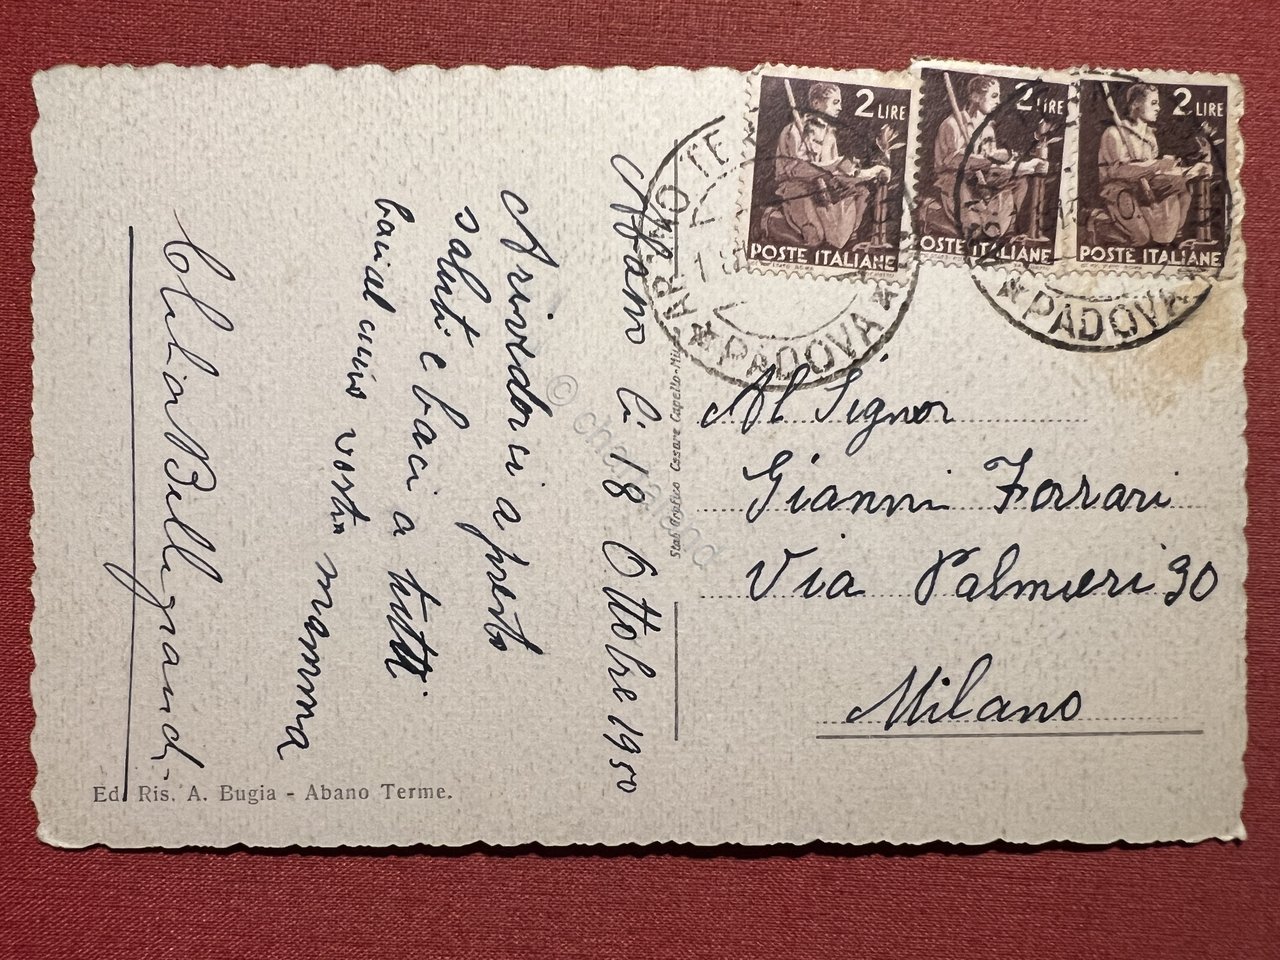 Abano li 18 Ottobre 1950
Arivedorci a presto
saluti e baci a tutti
baci al curio vostra mamma
Clelia Bellegrandi
Ed. Ris. A. Bugia - Abano Terme.
Stab. Grafico Cesare Capello-Mi
2 LIRE
POSTE ITALIANE
2 LIRE
POSTE ITALIANE
2 LIRE
POSTE ITALIANE
PADOVA
PADOVA
Al Signor
Gianni Ferrari
Via Palmieri 30
Milano